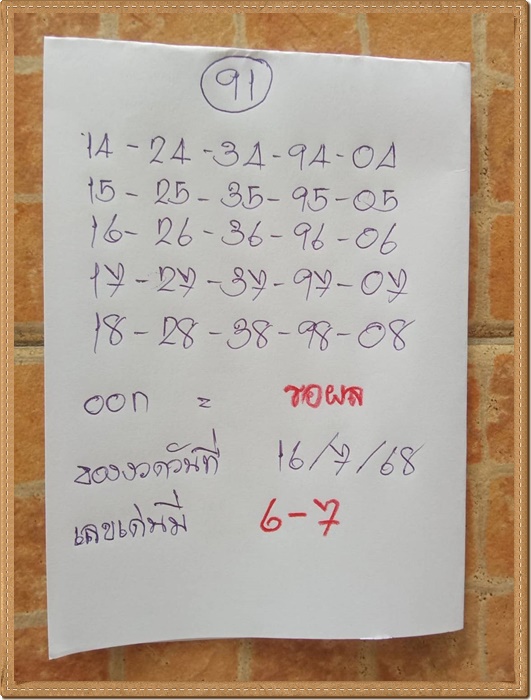 91
14 - 24 - 34 - 94 - 04
15 - 25 - 35 - 95 - 05
16 - 26 - 36 - 96 - 06
17 - 27 - 37 - 97 - 07
18 - 28 - 38 - 98 - 08
ออก = ขอผล
ของงวดวันที่ 16/7/68
เลขเด่นมี 6-7